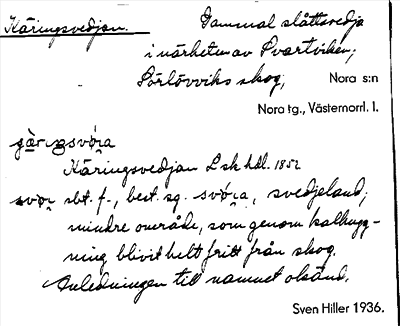 Käringsvedjan.
Gammal slåttsvedja
i närheten av Svartviken;
Sörlövviks skog; Nora s:n
Nora tg., Västernorrl. l.
Käringsvedjan L sk hdl. 1852
sbt. f., best. sg. svóra, svedjeland;
mindre område, som genom kalhugg-
ning blivit helt fritt från skog.
Anledningen till namnet okänd.
Sven Hiller 1936.